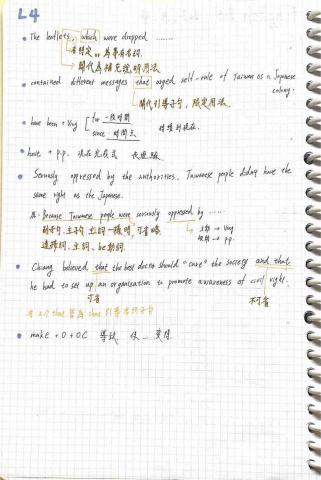 L4
• The leaflets, which were dropped ........
有特定, 為專有名詞.
關代為補充說明用法
• contained different messages that urged self-rule of Taiwan as a Japanese
colony.
關代引導子句, 限定用法.
• have been + Ving [ for 一段時間
since 時間點 持續到現在.
• have + p.p. 現在完成式
• Seriously oppressed by the authorities, Taiwanese people didn't have the
same right as the Japanese.
原: Because Taiwanese people were seriously oppressed by ......
副子句, 主句 主詞一致時, 可省略 主動 → Ving
連接詞, 主詞, be動詞. 被動 → p.p.
• Chiang believed that the best doctor should "cure" the society and that
he had to set up an organization to promote awareness of civil right.
可省 不可省
that 引導名詞子句
• make + O + OC 導致, 使... 變得